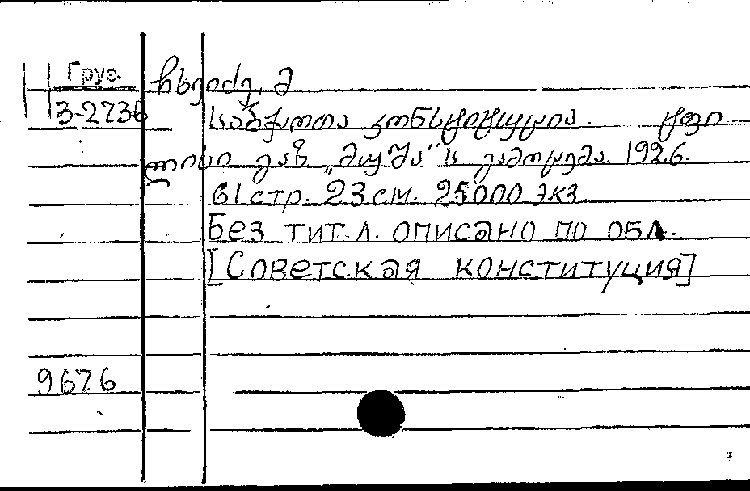 Груз. ჩხეიძე, მ
3-2736 საბჭოთა კონსტიტუცია. ტფი
ლისი გაზ. „მუშა“ს გამოცემა. 1926.
61 стр. 23 см. 25000 экз
Без тит. л. описано по обл.
[Советская конституция]
9676